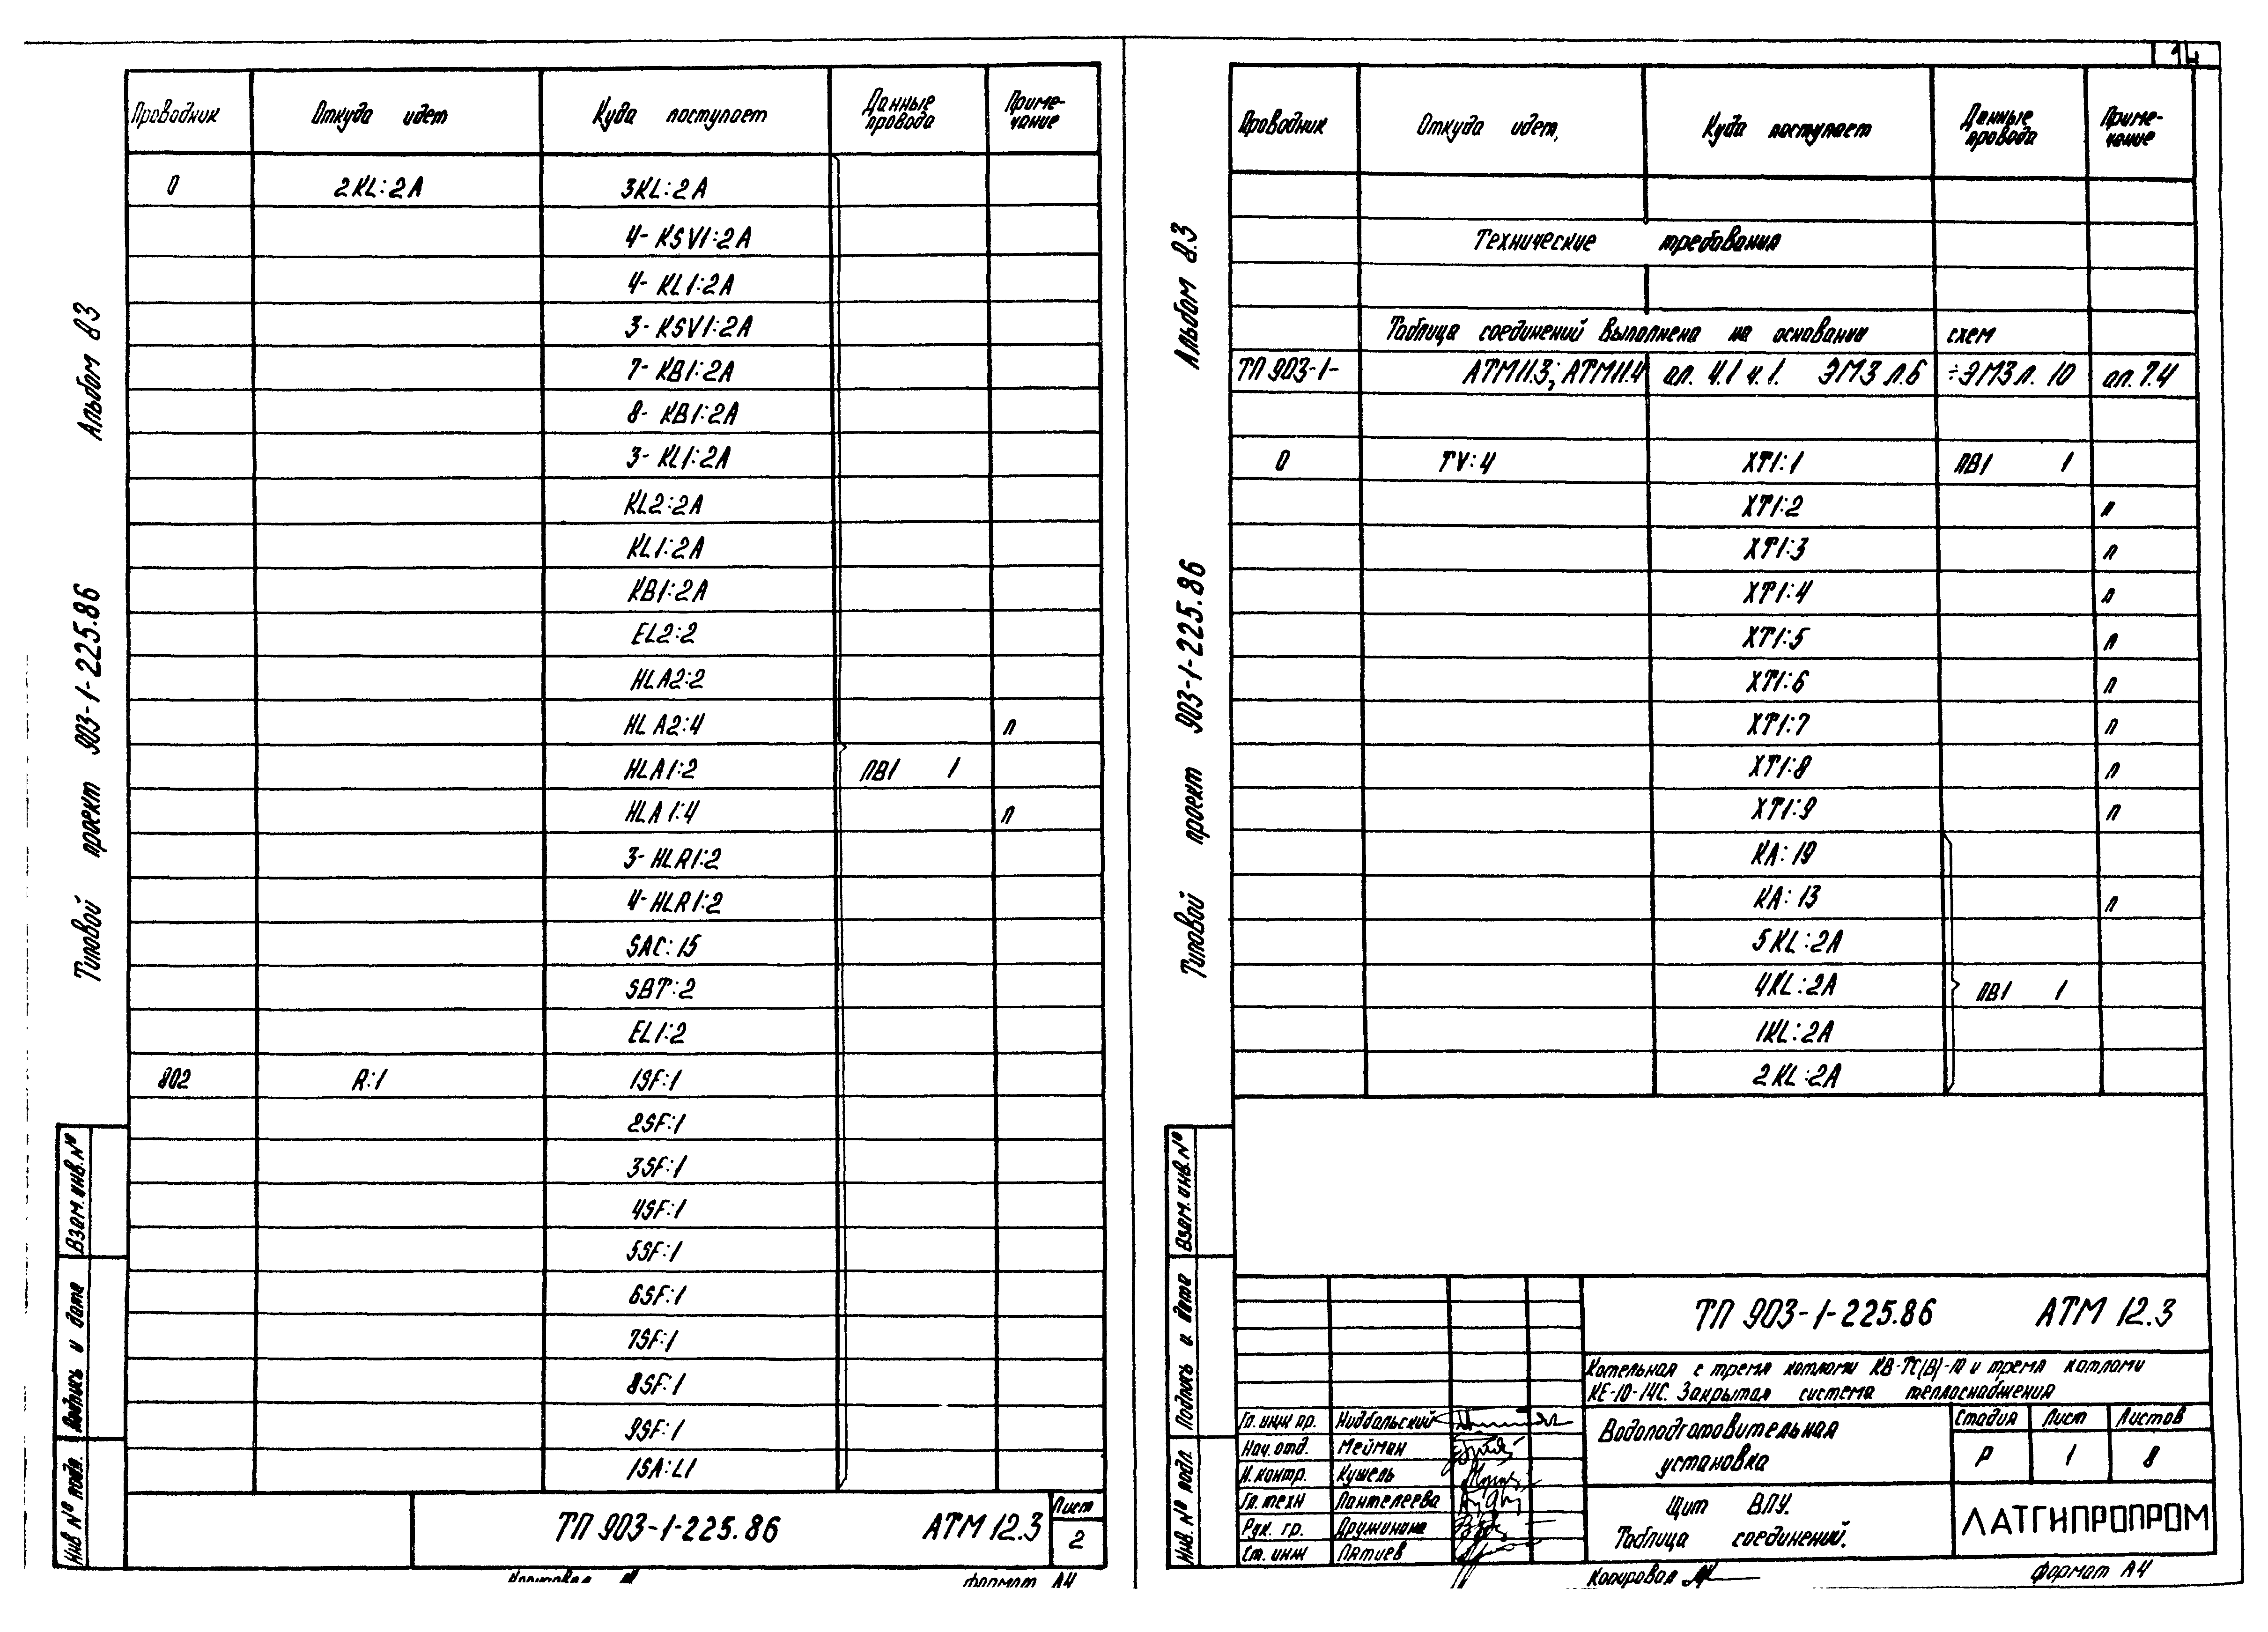 14
Альбом 8.3
Типовой проект 903-1-225.86
Проводник Откуда идет Куда поступает Данные провода Приме-чание
0 2KL:2A 3KL:2A
4-KSV1:2A
4-KL1:2A
3-KSV1:2A
7-KB1:2A
8-KB1:2A
3-KL1:2A
KL2:2A
KL1:2A
KB1:2A
EL2:2
HLA2:2
HLA2:4 п
HLA1:2 ПВ1 1
HLA1:4 п
3-HLR1:2
4-HLR1:2
SAC:15
SBT:2
EL1:2
802 R:1 1SF:1
2SF:1
3SF:1
4SF:1
5SF:1
6SF:1
7SF:1
8SF:1
9SF:1
1SA:L1
Взам. инв. №
Подпись и дата
Инв № подл.
ТП 903-1-225.86 АТМ 12.3
Лист
2
Копировал
Формат А4
Альбом 8.3
Типовой проект 903-1-225.86
Проводник Откуда идет, Куда поступает Данные провода Приме-чание
Технические требования
Таблица соединений выполнена на основании схем
ТП 903-1- АТМ11.3; АТМ11.4 ал. 4.1 ч.1. ЭМ3 л.6 ÷ЭМ3 л. 10 ал. 7.4
0 TV:4 XT1:1 ПВ1 1
XT1:2 п
XT1:3 п
XT1:4 п
XT1:5 п
XT1:6 п
XT1:7 п
XT1:8 п
XT1:9 п
KA:19
KA:13 п
5KL:2A
4KL:2A ПВ1 1
1KL:2A
2KL:2A
Взам. инв. №
Подпись и дата
Инв. № подл.
ТП 903-1-225.86 АТМ 12.3
Котельная с тремя котлами КВ-ТС(В)-10 и тремя котлами
КЕ-10-14С. Закрытая система теплоснабжения
Гл. инж пр. Нидбальский
Нач. отд. Мейман
Н. контр. Кушель
Гл. техн Пантелеева
Рук. гр. Дружинина
Ст. инж Пятиев
Водоподготовительная
установка
Стадия Лист Листов
Р 1 8
Щит ВПУ.
Таблица соединений.
ЛАТГИПРОПРОМ
Копировал
Формат А4